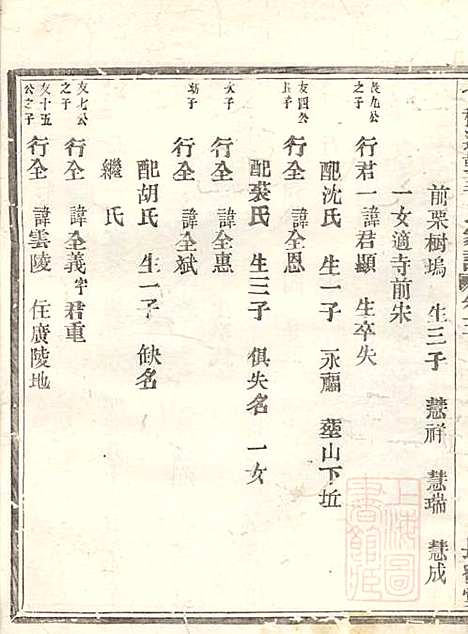 前栗樹塢 生三子 慧祥 慧瑞 慧成
一女適寺前朱
良九公之子 行君一 諱君顯 生卒失
配沈氏 生一子 永福 塟山下坵
友四公長子 行仝 諱仝恩
配裘氏 生三子 俱失名 一女
次子 行仝 諱仝惠
幼子 行仝 諱仝斌
配胡氏 生一子 缺名
繼氏
友七公之子 行仝 諱仝義 字君重
友十五公之子 行仝 諱雲陵 任廣陵地
上海圖書館藏